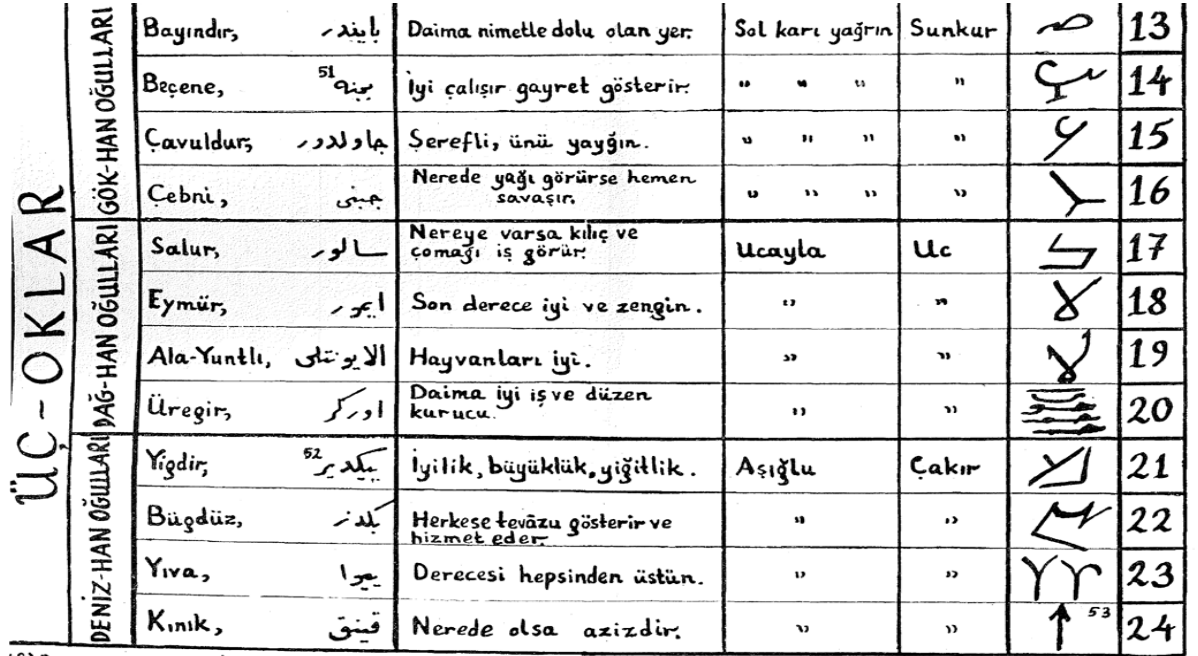 ÜÇ-OKLAR
GÖK-HAN OĞULLARI
Bayındır, بايندر Daima nimetle dolu olan yer. Sol karı yağrın Sunkur 13
Beçene, 51 بجنه İyi çalışır gayret gösterir. " " " " 14
Çavuldur, جاولدور Şerefli, ünü yayğın. " " " " 15
Çebni, جبنى Nerede yağı görürse hemen
savaşır. " " " " 16
DAĞ-HAN OĞULLARI
Salur, سالور Nereye varsa kılıç ve
çomağı iş görür. Ucayla Uc 17
Eymür, ايمور Son derece iyi ve zengin. " " 18
Ala-Yuntlı, الايونتلى Hayvanları iyi. " " 19
Üregir, اوركر Daima iyi iş ve düzen
kurucu. " " 20
DENİZ-HAN OĞULLARI
Yigdir, 52 ييكدير İyilik, büyüklük, yiğitlik. Aşığlu Çakır 21
Bügdüz, بكدز Herkese tevâzu gösterir ve
hizmet eder. " " 22
Yıva, ييوا Derecesi hepsinden üstün. " " 23
Kınık, قينق Nerede olsa azizdir. " " 53 24